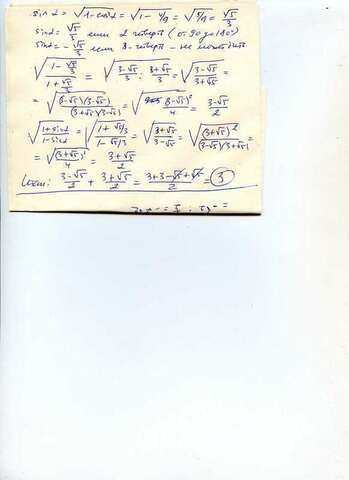 sin α = √(1-cos²α) = √(1 - 4/9) = √(5/9) = √5/3
sin α = √5/3 если 2 четверть (от 90 до 180°)
sin α = -√5/3 если 3 четверть - не
√((1 - √5/3)/(1 + √5/3)) = √((3-√5)/3 : (3+√5)/3) = √((3-√5)/(3+√5)) =
= √((3-√5)(3-√5)/((3+√5)(3-√5))) = √((3-√5)²/4) = (3-√5)/2
√((1+sin α)/(1-sin α)) = √((1+√5/3)/(1-√5/3)) = √((3+√5)/(3-√5)) = √((3+√5)²/((3-√5)(3+√5))) =
= √((3+√5)²/4) = (3+√5)/2
(3-√5)/2 + (3+√5)/2 = (3+3-√5+√5)/2 = 3